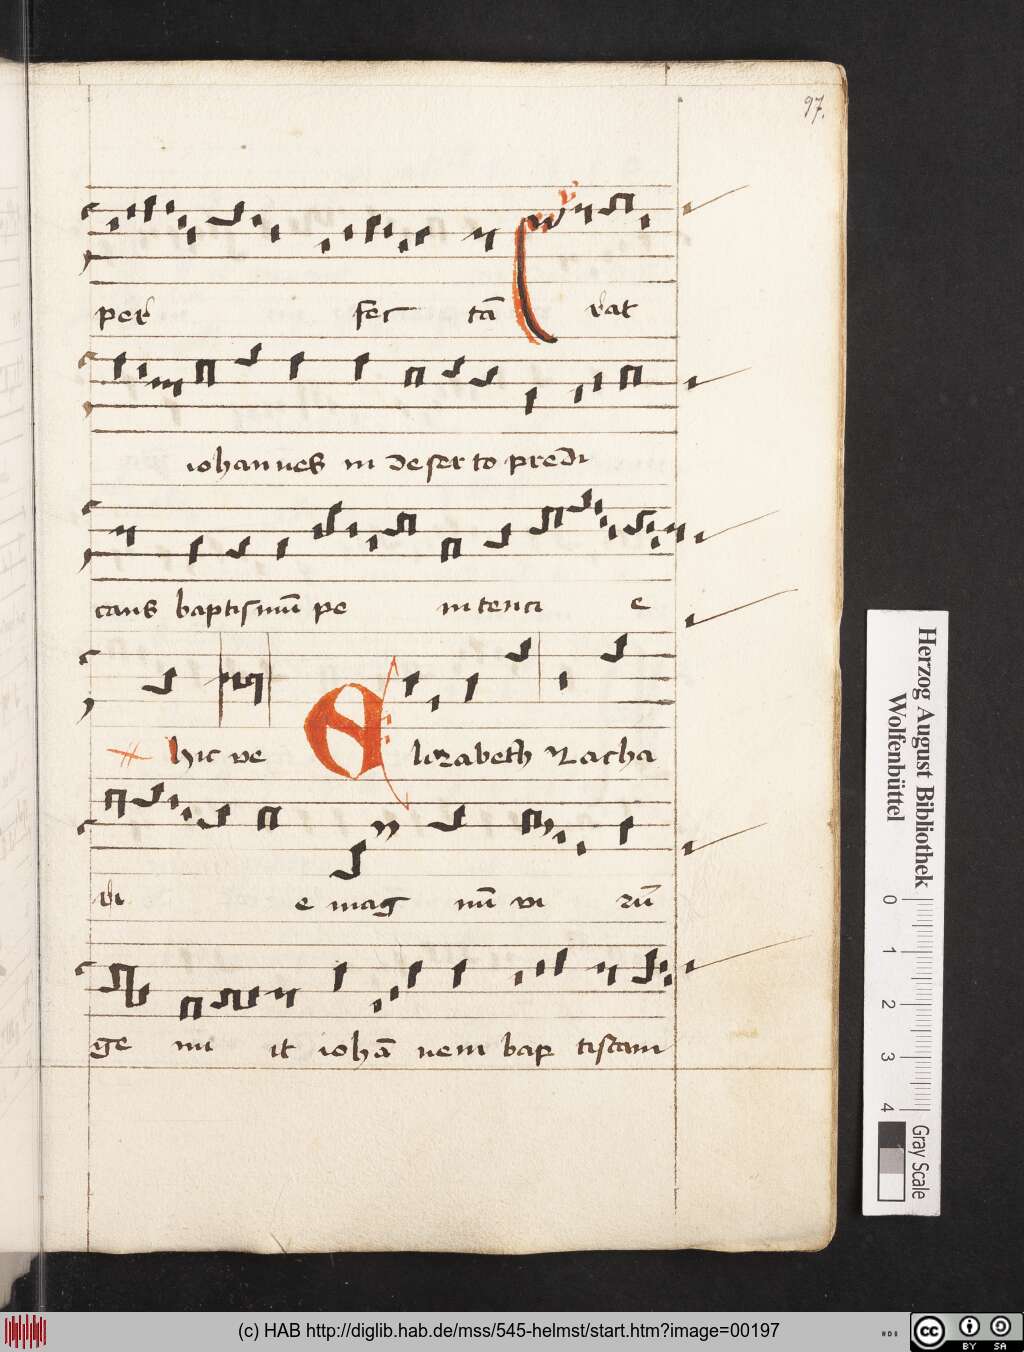 97.
per fec tā V rat
iohannes in deserto predi
cans baptismū pe niten ci e
hic ve Elizabeth Zacha
ri e magnū vi rū
ge nu it iohā nem bap tistam
Herzog August Bibliothek
Wolfenbüttel
0 1 2 3 4
Gray Scale
(c) HAB http://diglib.hab.de/mss/545-helmst/start.htm?image=00197
cc BY SA